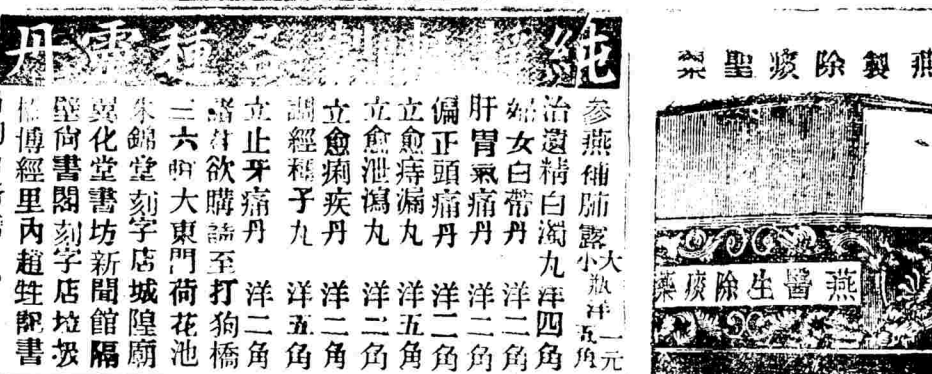 純製各種靈丹
參燕補肺露 大瓶洋一元 小瓶洋五角
治遺精白濁丸 洋四角
婦女白帶丹 洋二角
肝胃氣痛丹 洋二角
偏正頭痛丹 洋二角
立愈痔漏丸 洋五角
立愈泄瀉丸 洋二角
立愈痢疾丹 洋二角
調經種子丸 洋五角
立止牙痛丹 洋二角
欲購請至打狗橋
三六大東門荷花池
朱錦堂刻字店城隍廟
翼化堂書坊新聞館隔
壁尚書閣刻字店垃圾
橋博經里內趙甡書
燕製除痰聖藥
燕醫生除痰藥